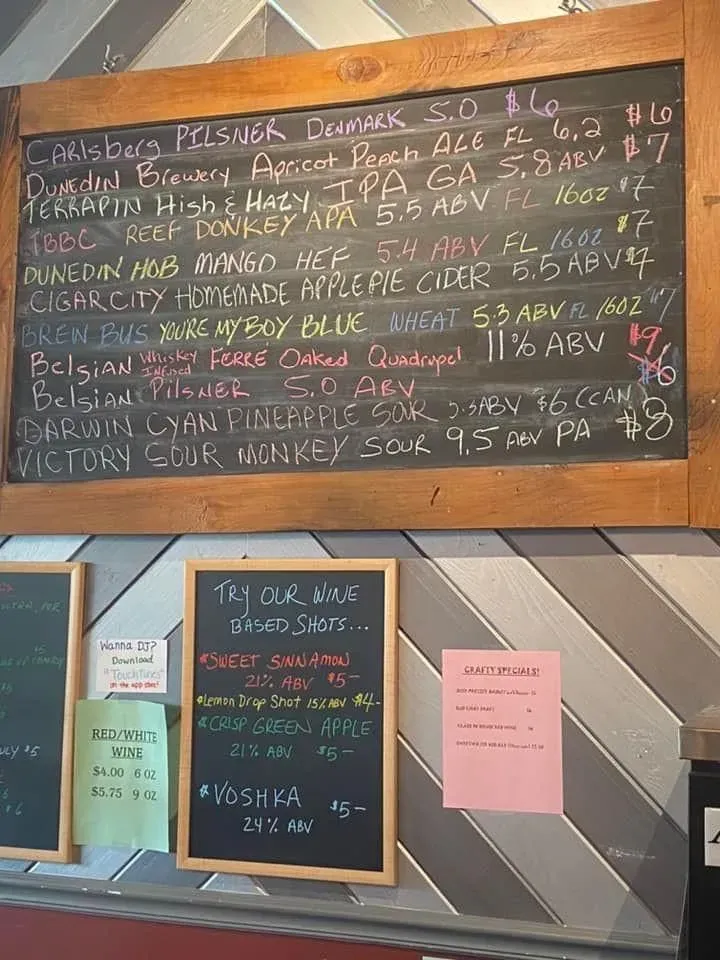 CARlsberg PILSNER DENMARK 5.0 $6
DUNEDIN Brewery Apricot Peach ALE FL 6.2 $6
TERRAPIN High & HAZY IPA GA 5.8 ABV $7
TBBC REEF DONKEY APA 5.5 ABV FL 16oz $7
DUNEDIN HOB MANGO HEF 5.4 ABV FL 16OZ $7
CIGAR CITY HOMEMADE APPLE PIE CIDER 5.5 ABV $7
BREW BUS YOURE MY BOY BLUE WHEAT 5.3 ABV FL 16OZ $7
BElgian Whiskey INFUSED FERRE Oaked Quadrupel 11% ABV $9
BElgian PilSNER 5.0 ABV $6
DARWIN CYAN PINEAPPLE SOUR ABV $6 (CAN)
VICTORY SOUR MONKEY SOUR 9.5 ABV PA $8
TRY OUR WINE
BASED SHOTS...
*SWEET SINNAMON
21% ABV $5-
*Lemon Drop Shot 15% ABV $4-
*CRISP GREEN APPLE
21% ABV $5-
*VOSHKA $5-
24% ABV
Wanna DJ?
Download
"TouchTunes"
on the app store!
RED/WHITE
WINE
$4.00 6 OZ
$5.75 9 OZ
CRAFTY SPECIALS!
$5
$5
$6